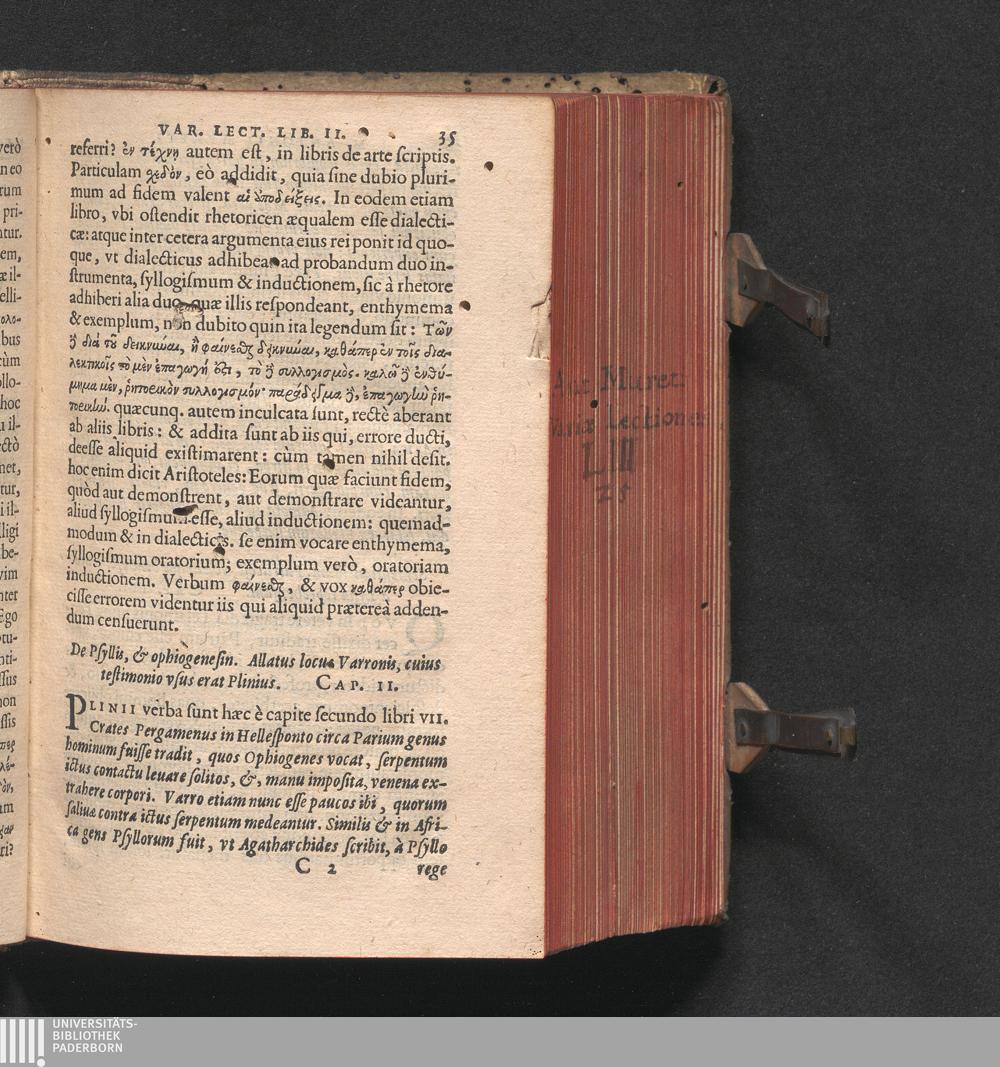 VAR. LECT. LIB. II. 35
referri? ἐν τέχνῃ autem eſt, in libris de arte ſcriptis.
Particulam χεδὸν, eò addidit, quia ſine dubio pluri-
mum ad fidem valent αἱ ἀποδείξεις. In eodem etiam
libro, vbi oſtendit rhetoricen æqualem eſſe dialecti-
cæ: atque inter cetera argumenta eius rei ponit id quo-
que, vt dialecticus adhibeat ad probandum duo in-
ſtrumenta, ſyllogiſmum & inductionem, ſic à rhetore
adhiberi alia duo quæ illis reſpondeant, enthymema
& exemplum, non dubito quin ita legendum ſit: Τῶν
ἢ διὰ τοῦ δεικνύναι, ἢ φαίνεσθαι δεικνύναι, καθάπερ ἐν τοῖς δια-
λεκτικοῖς τὸ μὲν ἐπαγωγή ὅτι, τὸ δὲ συλλογισμός. καλῶ δὲ ἐνθύ-
μημα μὲν, ῥητορικὸν συλλογισμόν· παράδειγμα δὲ, ἐπαγωγὴν ῥη-
τορικήν. quæcunq. autem inculcata ſunt, rectè aberant
ab aliis libris: & addita ſunt ab iis qui, errore ducti,
deeſſe aliquid exiſtimarent: cùm tamen nihil deſit.
hoc enim dicit Ariſtoteles: Eorum quæ faciunt fidem,
quòd aut demonſtrent, aut demonſtrare videantur,
aliud ſyllogiſmum eſſe, aliud inductionem: quemad-
modum & in dialecticis. ſe enim vocare enthymema,
ſyllogiſmum oratorium; exemplum verò, oratoriam
inductionem. Verbum φαίνεσθαι, & vox καθάπερ obie-
ciſſe errorem videntur iis qui aliquid præterea adden-
dum cenſuerunt.
De Pſyllis, & ophiogeneſin. Allatus locus Varronis, cuius
teſtimonio vſus erat Plinius. CAP. II.
PLINII verba ſunt hæc è capite ſecundo libri VII.
Crates Pergamenus in Helleſponto circa Parium genus
hominum fuiſſe tradit, quos Ophiogenes vocat, ſerpentum
ictus contactu leuare ſolitos, &, manu impoſita, venena ex-
trahere corpori. Varro etiam nunc eſſe paucos ibi, quorum
ſaliuæ contra ictus ſerpentum medeantur. Similis & in Afri-
ca gens Pſyllorum fuit, vt Agatharchides ſcribit, à Pſyllo
C 2 rege
Muret:
Lectiones
LIII
25
UNIVERSITÄTS-
BIBLIOTHEK
PADERBORN